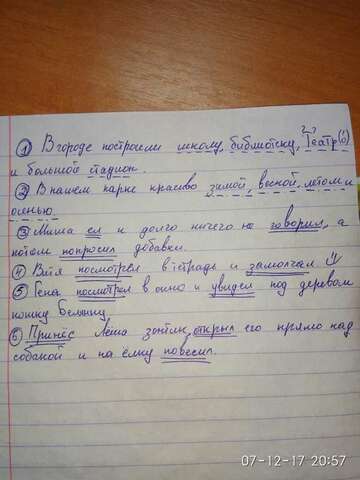 ① В городе построили школу, библиотеку, Театр(ы)
и большой стадион.
② В нашем парке красиво зимой, весной, летом и
осенью.
③ Миша ел и долго ничего не говорил, а
потом попросил добавки.
④ Витя посмотрел в тетрадь и замолчал
⑤ Гена посмотрел в окно и увидел под деревом
кошку Белянку.
⑥ Принёс Леша зонтик, открыл его прямо над
собакой и на ёлку повесил.
07-12-17 20:57